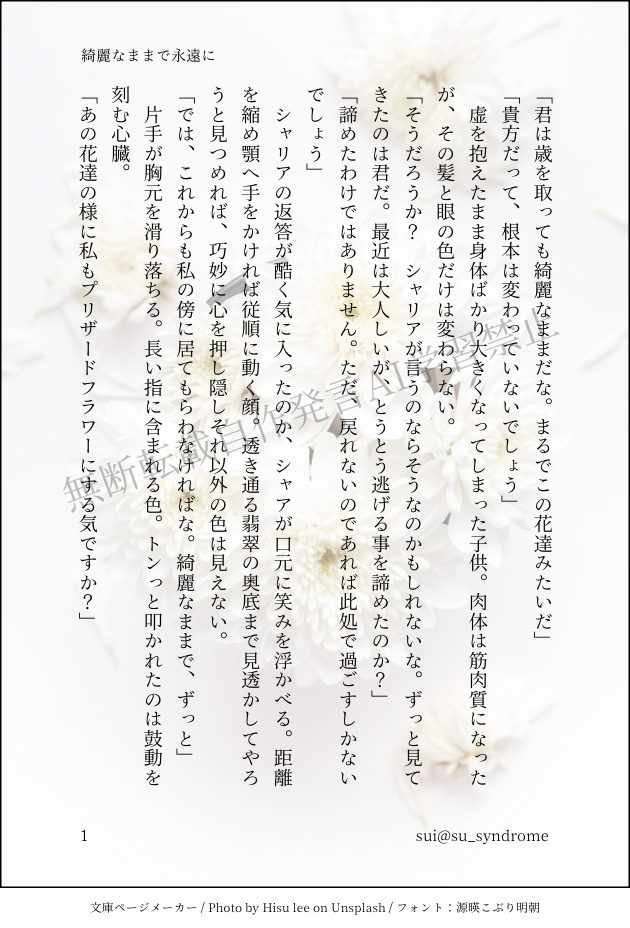 綺麗なままで永遠に
「君は歳を取っても綺麗なままだな。まるでこの花達みたいだ」
「貴方だって、根本は変わっていないでしょう」
　虚を抱えたまま身体ばかり大きくなってしまった子供。肉体は筋肉質になった
が、その髪と眼の色だけは変わらない。
「そうだろうか？　シャリアが言うのならそうなのかもしれないな。ずっと見て
きたのは君だ。最近は大人しいが、とうとう逃げる事を諦めたのか？」
「諦めたわけではありません。ただ、戻れないのであれば此処で過ごすしかない
でしょう」
　シャリアの返答が酷く気に入ったのか、シャアが口元に笑みを浮かべる。距離
を縮め顎へ手をかければ従順に動く顔。透き通る翡翠の奥底まで見透かしてやろ
うと見つめれば、巧妙に心を押し隠しそれ以外の色は見えない。
「では、これからも私の傍に居てもらわなければな。綺麗なままで、ずっと」
　片手が胸元を滑り落ちる。長い指に含まれる色。トンっと叩かれたのは鼓動を
刻む心臓。
「あの花達の様に私もプリザードフラワーにする気ですか？」
無断転載自作発言AI学習禁止
1
sui@su_syndrome
文庫ページメーカー / Photo by Hisu lee on Unsplash / フォント：源暎こぶり明朝